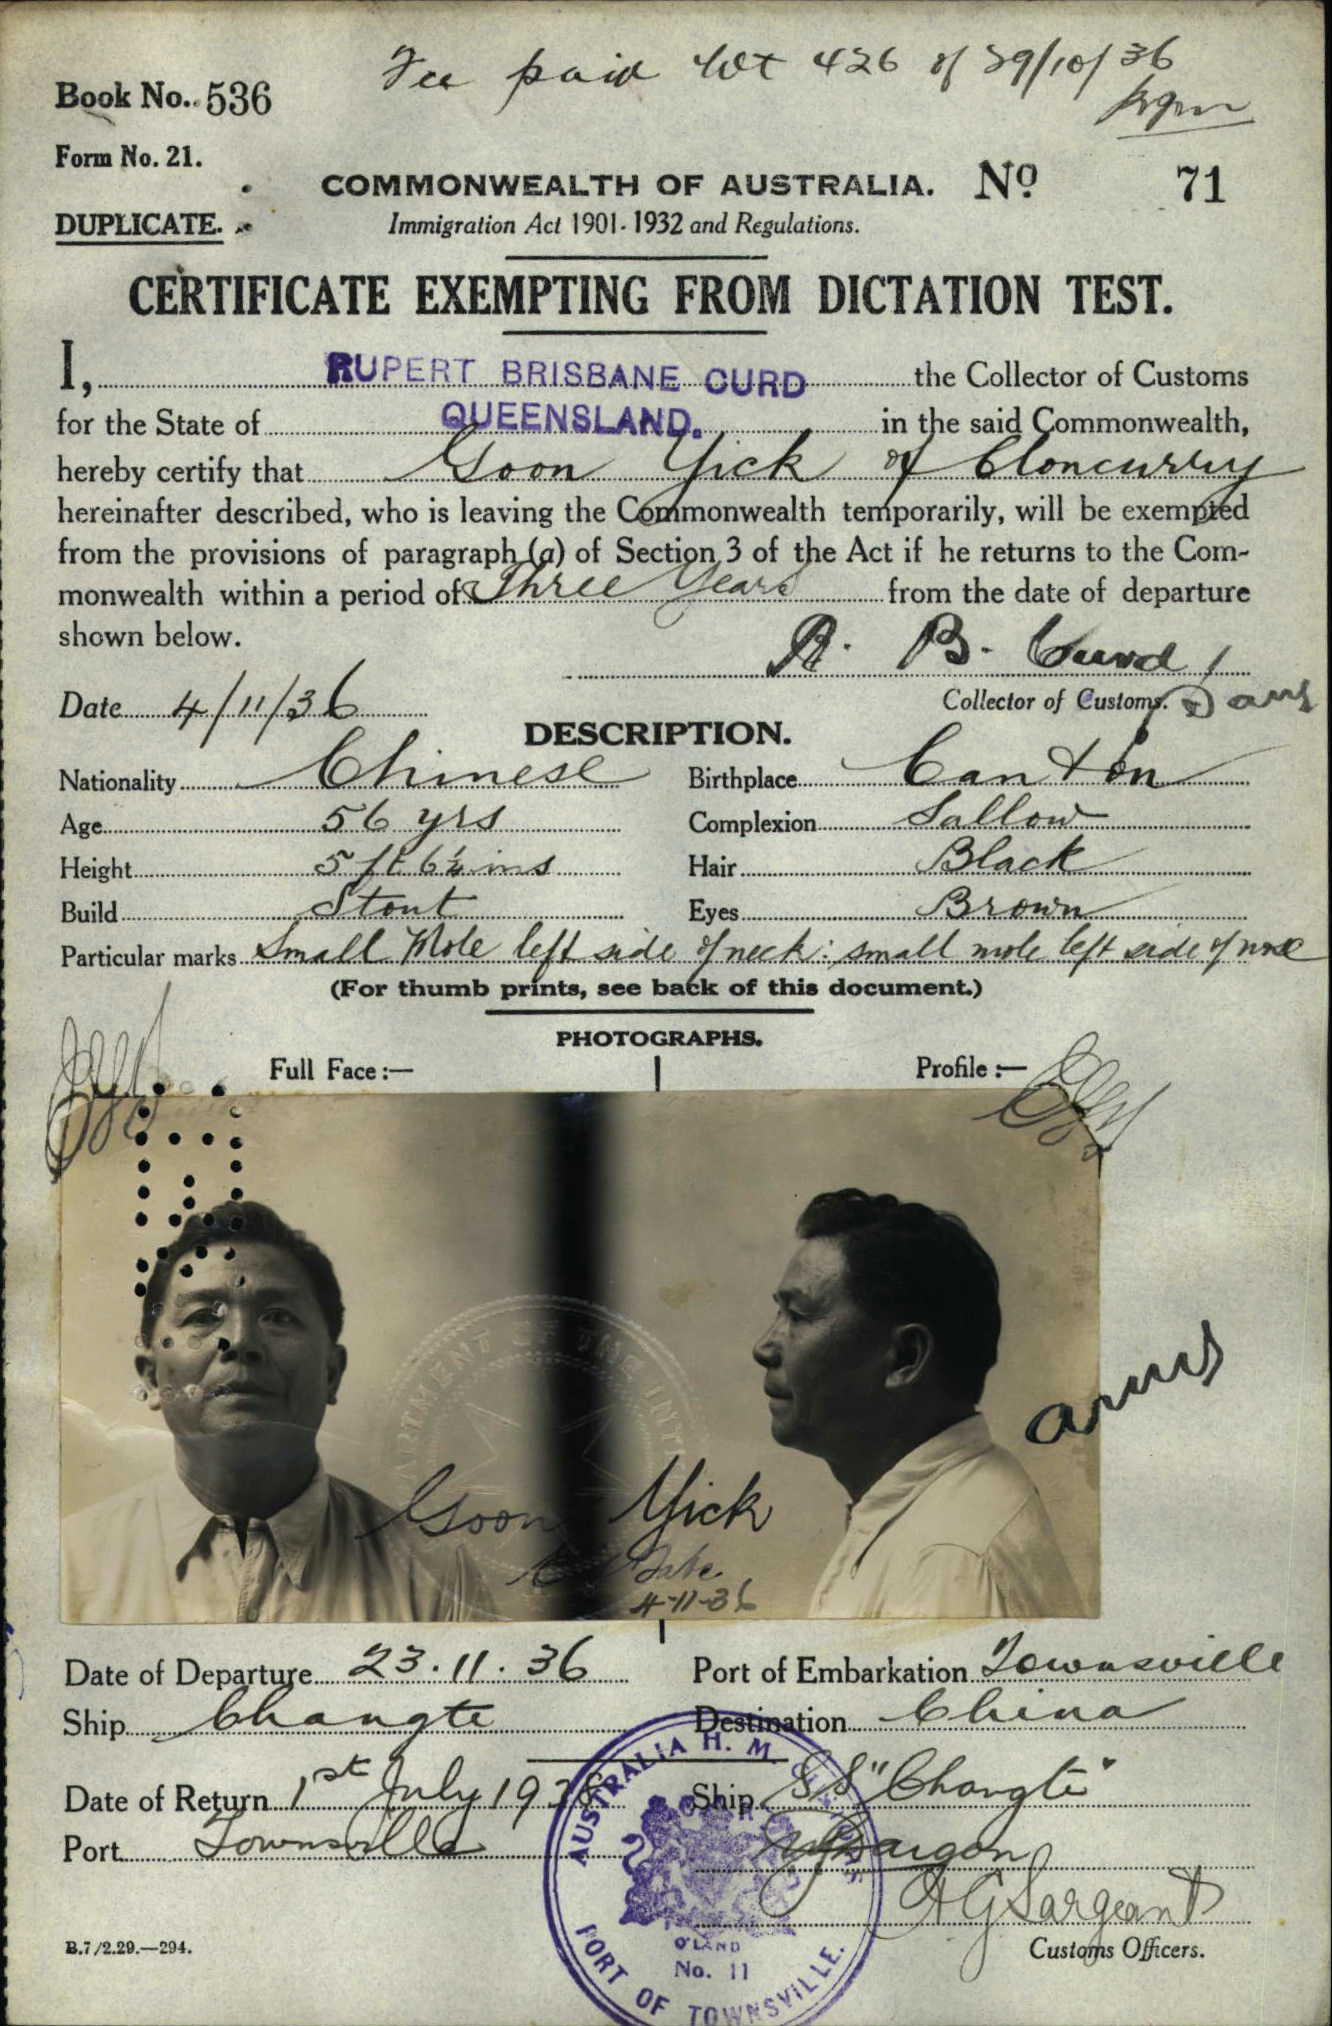 Fee paid 426 of 29/10/36
Book No. 536
Form No. 21.
COMMONWEALTH OF AUSTRALIA. No 71
DUPLICATE.
Immigration Act 1901-1932 and Regulations.
CERTIFICATE EXEMPTING FROM DICTATION TEST.
I, RUPERT BRISBANE CURD the Collector of Customs
for the State of QUEENSLAND. in the said Commonwealth,
hereby certify that Goon Yick of Cloncurry
hereinafter described, who is leaving the Commonwealth temporarily, will be exempted
from the provisions of paragraph (a) of Section 3 of the Act if he returns to the Com-
monwealth within a period of Three Years from the date of departure
shown below.
R. B. Curd
Date 4/11/36
Collector of Customs.
DESCRIPTION.
Nationality Chinese Birthplace Canton
Age 56 yrs Complexion Sallow
Height 5 ft 6½ ins Hair Black
Build Stout Eyes Brown
Particular marks Small Mole left side of neck: small mole left side of nose
(For thumb prints, see back of this document.)
PHOTOGRAPHS.
Full Face:— Profile:—
Goon Yick
4-11-36
Date of Departure 23.11.36 Port of Embarkation Townsville
Ship Changte Destination China
Date of Return 1st July 1938 Ship SS "Changte"
Port Townsville
H G Sargeant
B.7/2.29.—294.
Customs Officers.
AUSTRALIA H. M. CUSTOMS
Q'LAND
No. 11
PORT OF TOWNSVILLE.